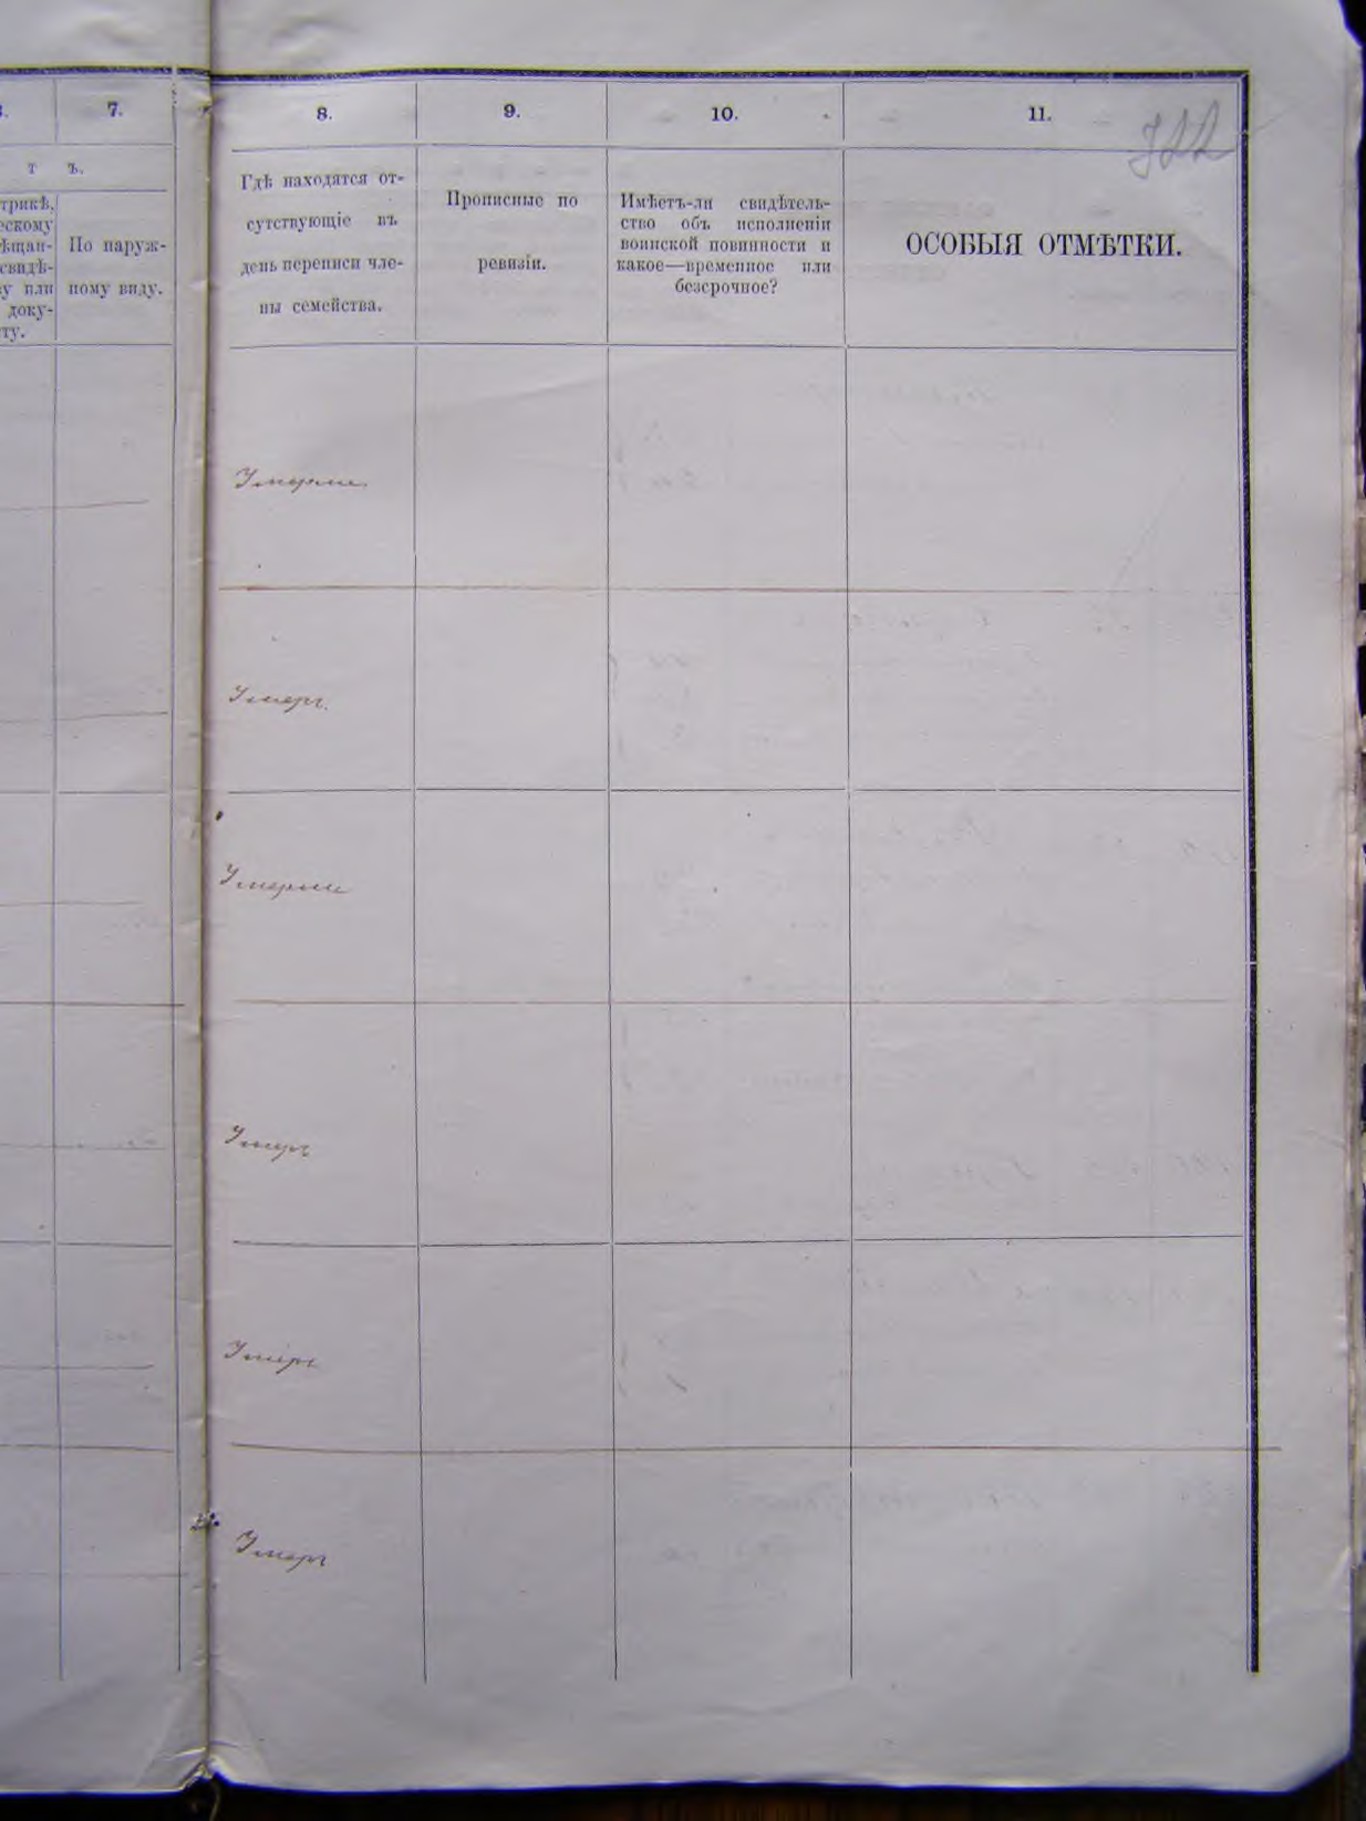 7.
8.
9.
10.
11.
т ъ.
трикѣ,
ескому
ѣщан-
свидѣ-
ву или
доку-
ту.
По наруж-
ному виду.
Гдѣ находятся от-
сутствующіе въ
день переписи чле-
ны семейства.
Прописные по
ревизіи.
Имѣетъ-ли свидѣтель-
ство объ исполненіи
воинской повинности и
какое—временное или
безсрочное?
ОСОБЫЯ ОТМѢТКИ.
Умерши.
Умеръ.
Умерши
Умеръ
Умеръ
Умеръ